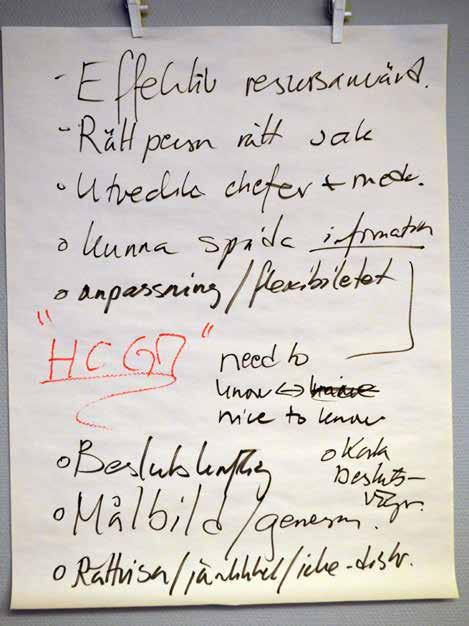 - Effektiv resursanvänd.
- Rätt person rätt sak
• Utveckla chefer + medv.
o kunna sprida information
o anpassning/flexibiletet
"HCGM"
need to
know <->
nice to know
o Beslutskraftig
o Korta
Besluts-
vägr.
o Målbild/genesam.
o Rättvisa/jämlikhet/icke-diskr.